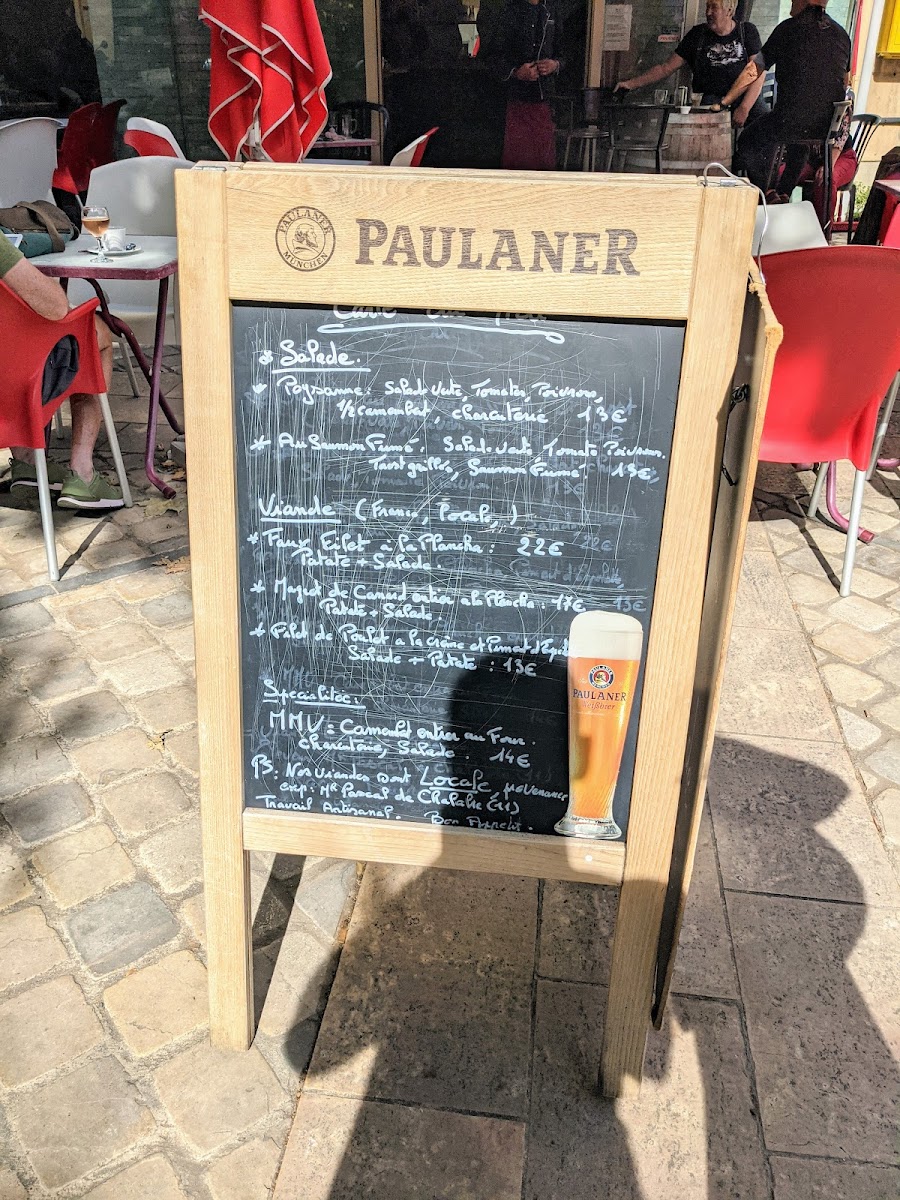 PAULANER
MÜNCHEN
PAULANER
* Salade.
* Paysanne: Salade Verte, Tomates, Poivrons,
1/2 camembert, charcuterie 13€
* Au Saumon Fumé: Salade Verte Tomate Poivrons.
Saumon Fumé. 13€
Viande (France, Locale,)
* Faux Filet a la Plancha: 22€
Patate + Salade.
* Magret de Canard entier a la Plancha: 17€
Patate + Salade.
* Filet de Poulet a la crème et Piment d'Espel
Salade + Patate : 13€
Spécialitée
MMV: Camembert entier au Four.
charcuterie, Salade. 14€
PS: Nos Viandes sont Locale provenance
Mr Pascal de Chalabre (11)
Travail Artisanal. Bon Appetit.
PAULANER
Weißbier